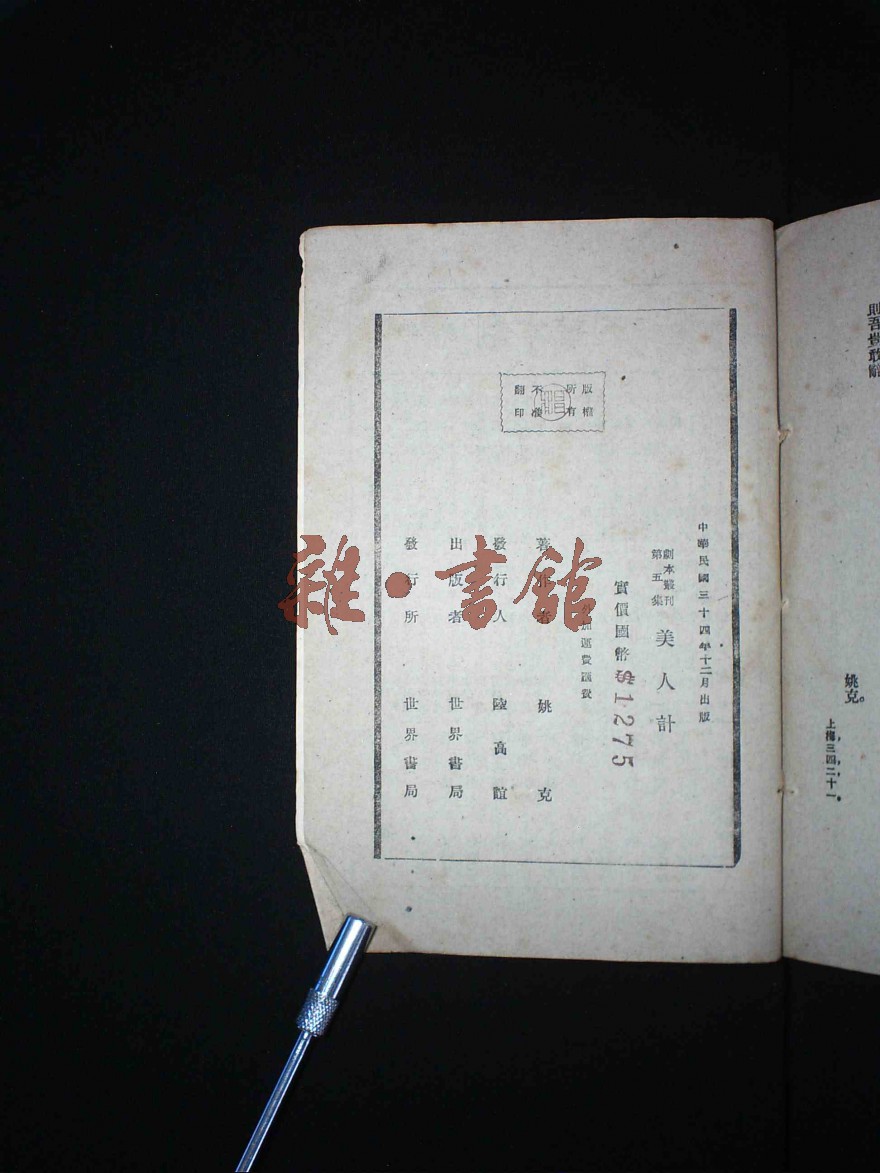 則吾豈敢辭
姚克。
上海，三，四，二十一。
版權所有
不准翻印
中華民國三十四年十二月出版
劇本叢刊第五集
美人計
實價國幣$1275
外加運費匯費
著作者 姚克
發行人 陸高誼
出版者 世界書局
發行所 世界書局
雜·書館